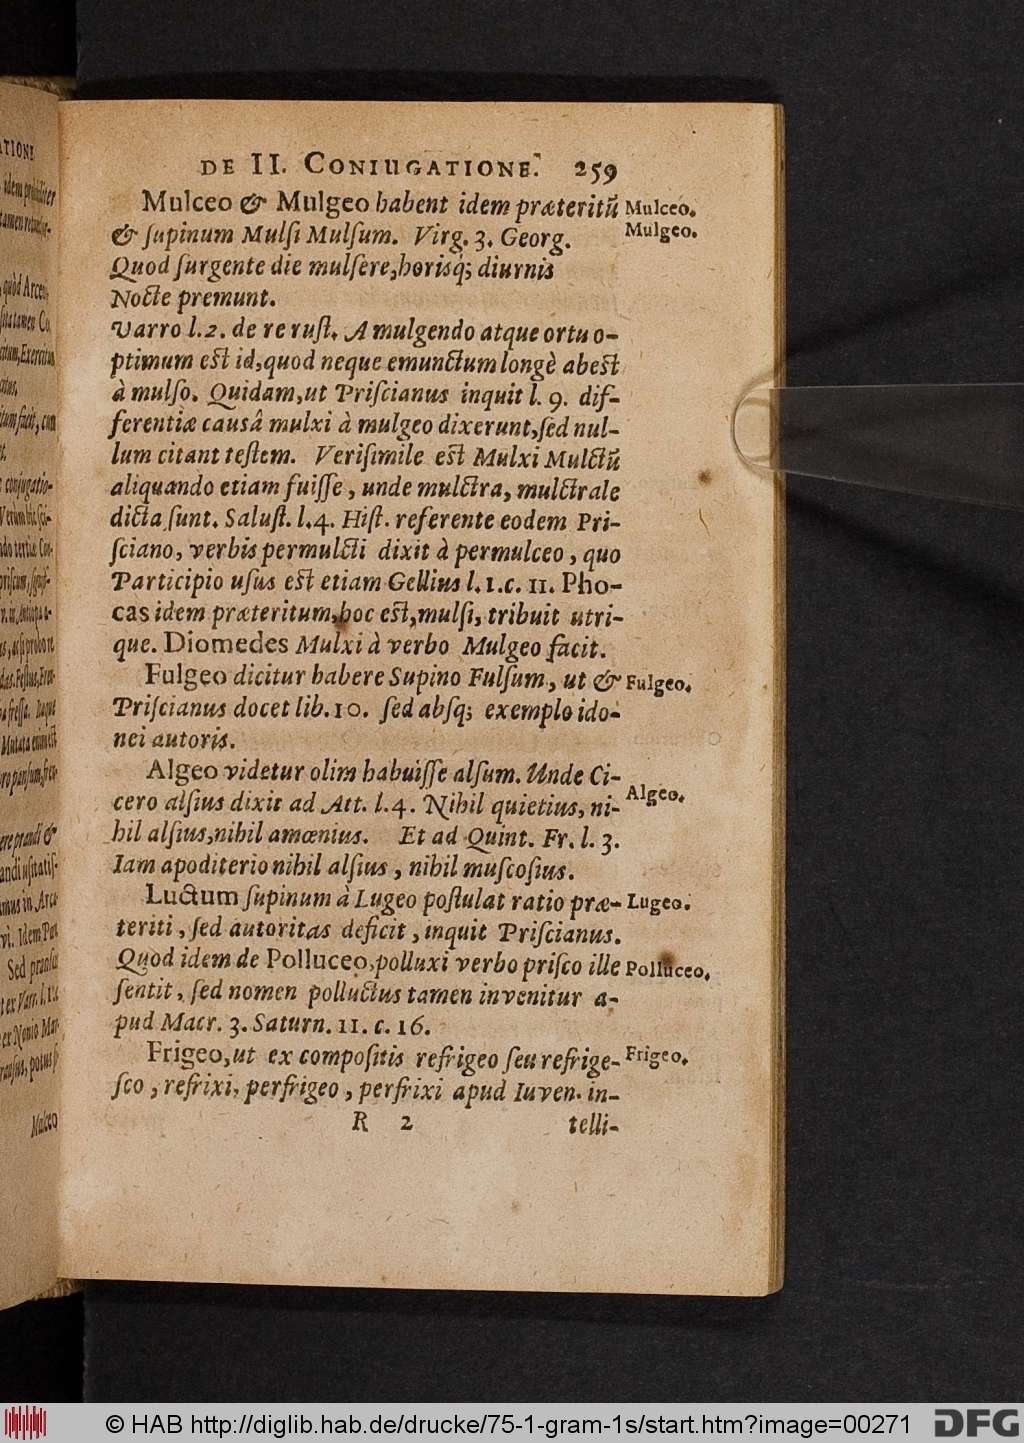 DE II. CONIUGATIONE. 259
Mulceo & Mulgeo habent idem præteritũ Mulceo.
& ſupinum Mulſi Mulſum. Virg. 3. Georg. Mulgeo.
Quod ſurgente die mulſere, horisq; diurnis
Nocte premunt.
Varro l. 2. de re ruſt. A mulgendo atque ortu o-
ptimum est id, quod neque emunctum longè abest
à mulſo. Quidam, ut Priſcianus inquit l. 9. dif-
ferentiæ causâ mulxi à mulgeo dixerunt, ſed nul-
lum citant teſtem. Veriſimile est Mulxi Mulctũ
aliquando etiam fuiſſe, unde mulctra, mulctrale
dicta ſunt. Saluſt. l. 4. Hiſt. referente eodem Pri-
ſciano, verbis permulcti dixit à permulceo, quo
Participio uſus est etiam Gellius l. 1. c. 11. Pho-
cas idem præteritum, hoc est, mulſi, tribuit utri-
que. Diomedes Mulxi à verbo Mulgeo facit.
Fulgeo dicitur habere Supino Fulſum, ut & Fulgeo.
Priſcianus docet lib. 10. ſed absq; exemplo ido-
nei autoris.
Algeo videtur olim habuiſſe alſum. Unde Ci-
cero alſius dixit ad Att. l. 4. Nihil quietius, ni- Algeo.
hil alſius, nihil amœnius. Et ad Quint. Fr. l. 3.
Iam apoditerio nihil alſius, nihil muſcoſius.
Luctum ſupinum à Lugeo poſtulat ratio præ- Lugeo.
teriti, ſed autoritas deficit, inquit Priſcianus.
Quod idem de Polluceo, polluxi verbo priſco ille Polluceo.
ſentit, ſed nomen polluctus tamen invenitur a-
pud Macr. 3. Saturn. 11. c. 16.
Frigeo, ut ex compoſitis refrigeo ſeu refrige- Frigeo.
ſco, refrixi, perfrigeo, perfrixi apud Iuven. in-
R 2 telli-
© HAB http://diglib.hab.de/drucke/75-1-gram-1s/start.htm?image=00271 DFG